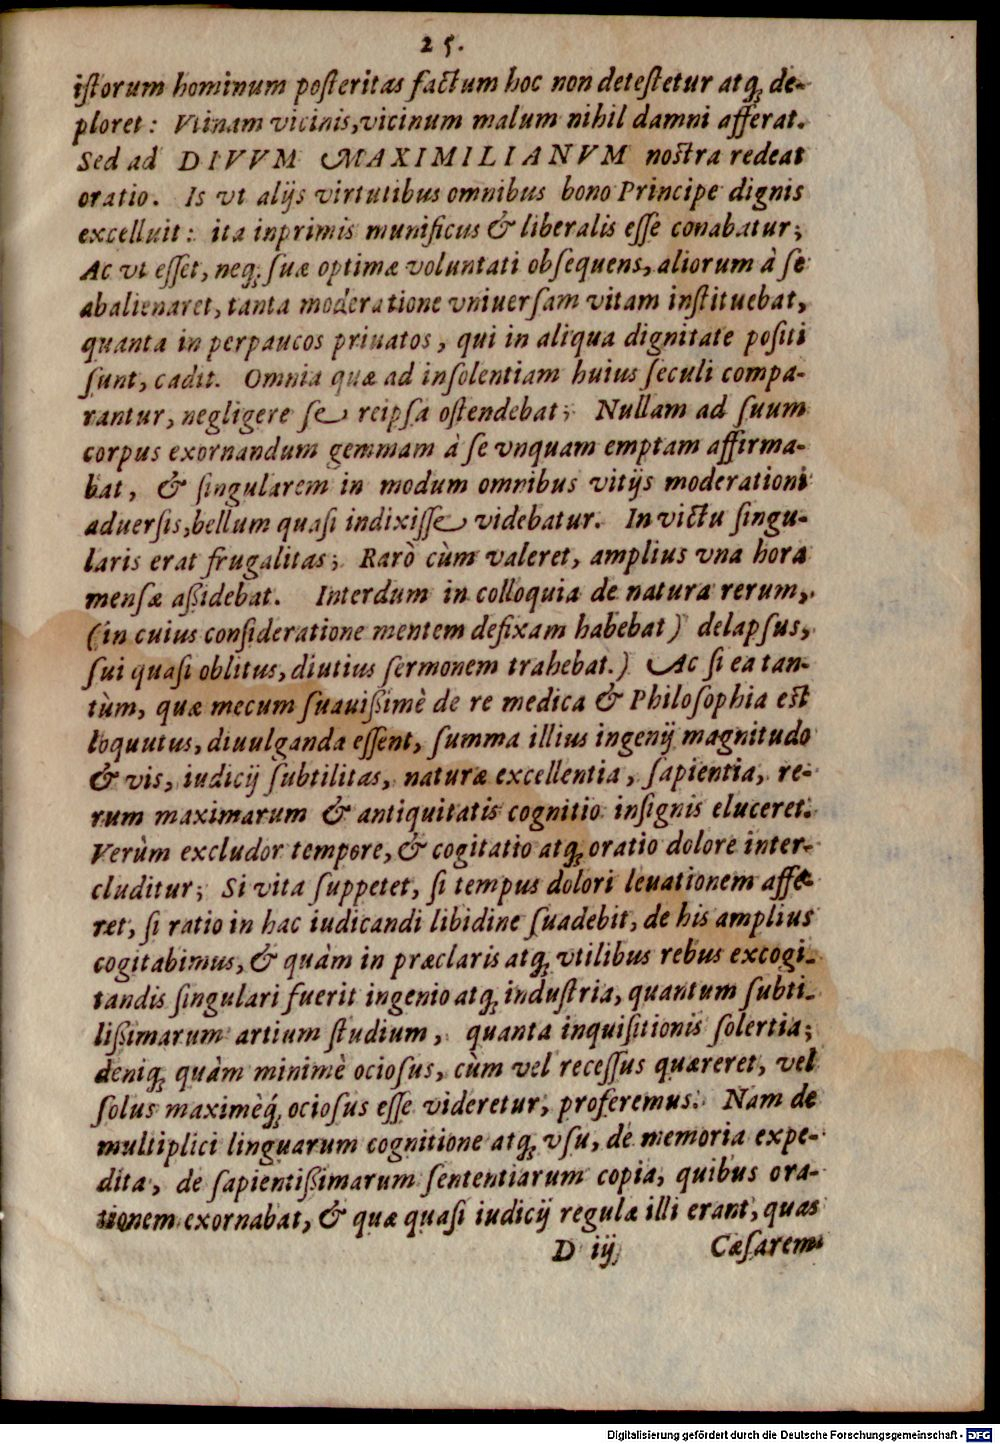 25.
iſtorum hominum poſteritas factum hoc non deteſtetur atq; de-
ploret: Vtinam vicinis, vicinum malum nihil damni afferat.
Sed ad DIVVM MAXIMILIANVM noſtra redeat
oratio. Is vt alijs virtutibus omnibus bono Principe dignis
excelluit: ita inprimis munificus & liberalis eſſe conabatur;
Ac vt eſſet, neq; ſuæ optimæ voluntati obſequens, aliorum à ſe
abalienaret, tanta moderatione vniuerſam vitam inſtituebat,
quanta in perpaucos priuatos, qui in aliqua dignitate poſiti
ſunt, cadit. Omnia quæ ad inſolentiam huius ſeculi compa-
rantur, negligere ſe reipſa oſtendebat; Nullam ad ſuum
corpus exornandum gemmam à ſe vnquam emptam affirma-
bat, & ſingularem in modum omnibus vitijs moderationi
aduerſis, bellum quaſi indixiſſe videbatur. In victu ſingu-
laris erat frugalitas; Rarò cùm valeret, amplius vna hora
menſæ aßidebat. Interdum in colloquia de natura rerum,
(in cuius conſideratione mentem defixam habebat) delapſus,
ſui quaſi oblitus, diutius ſermonem trahebat.) Ac ſi ea tan-
tùm, quæ mecum ſuauißimè de re medica & Philoſophia eſt
loquutus, diuulganda eſſent, ſumma illius ingenij magnitudo
& vis, iudicij ſubtilitas, naturæ excellentia, ſapientia, re-
rum maximarum & antiquitatis cognitio inſignis eluceret.
Verùm excludor tempore, & cogitatio atq; oratio dolore inter-
cluditur; Si vita ſuppetet, ſi tempus dolori leuationem affe-
ret, ſi ratio in hac iudicandi libidine ſuadebit, de his amplius
cogitabimus, & quàm in præclaris atq; vtilibus rebus excogi-
tandis ſingulari fuerit ingenio atq; induſtria, quantum ſubti-
lißimarum artium ſtudium, quanta inquiſitionis ſolertia;
deniq; quàm minimè ocioſus, cùm vel receſſus quæreret, vel
ſolus maximèq́; ocioſus eſſe videretur, proferemus. Nam de
multiplici linguarum cognitione atq; vſu, de memoria expe-
dita, de ſapientißimarum ſententiarum copia, quibus ora-
tionem exornabat, & quæ quaſi iudicij regulæ illi erant, quas
D iij Cæſarem
Digitalisierung gefördert durch die Deutsche Forschungsgemeinschaft - DFG